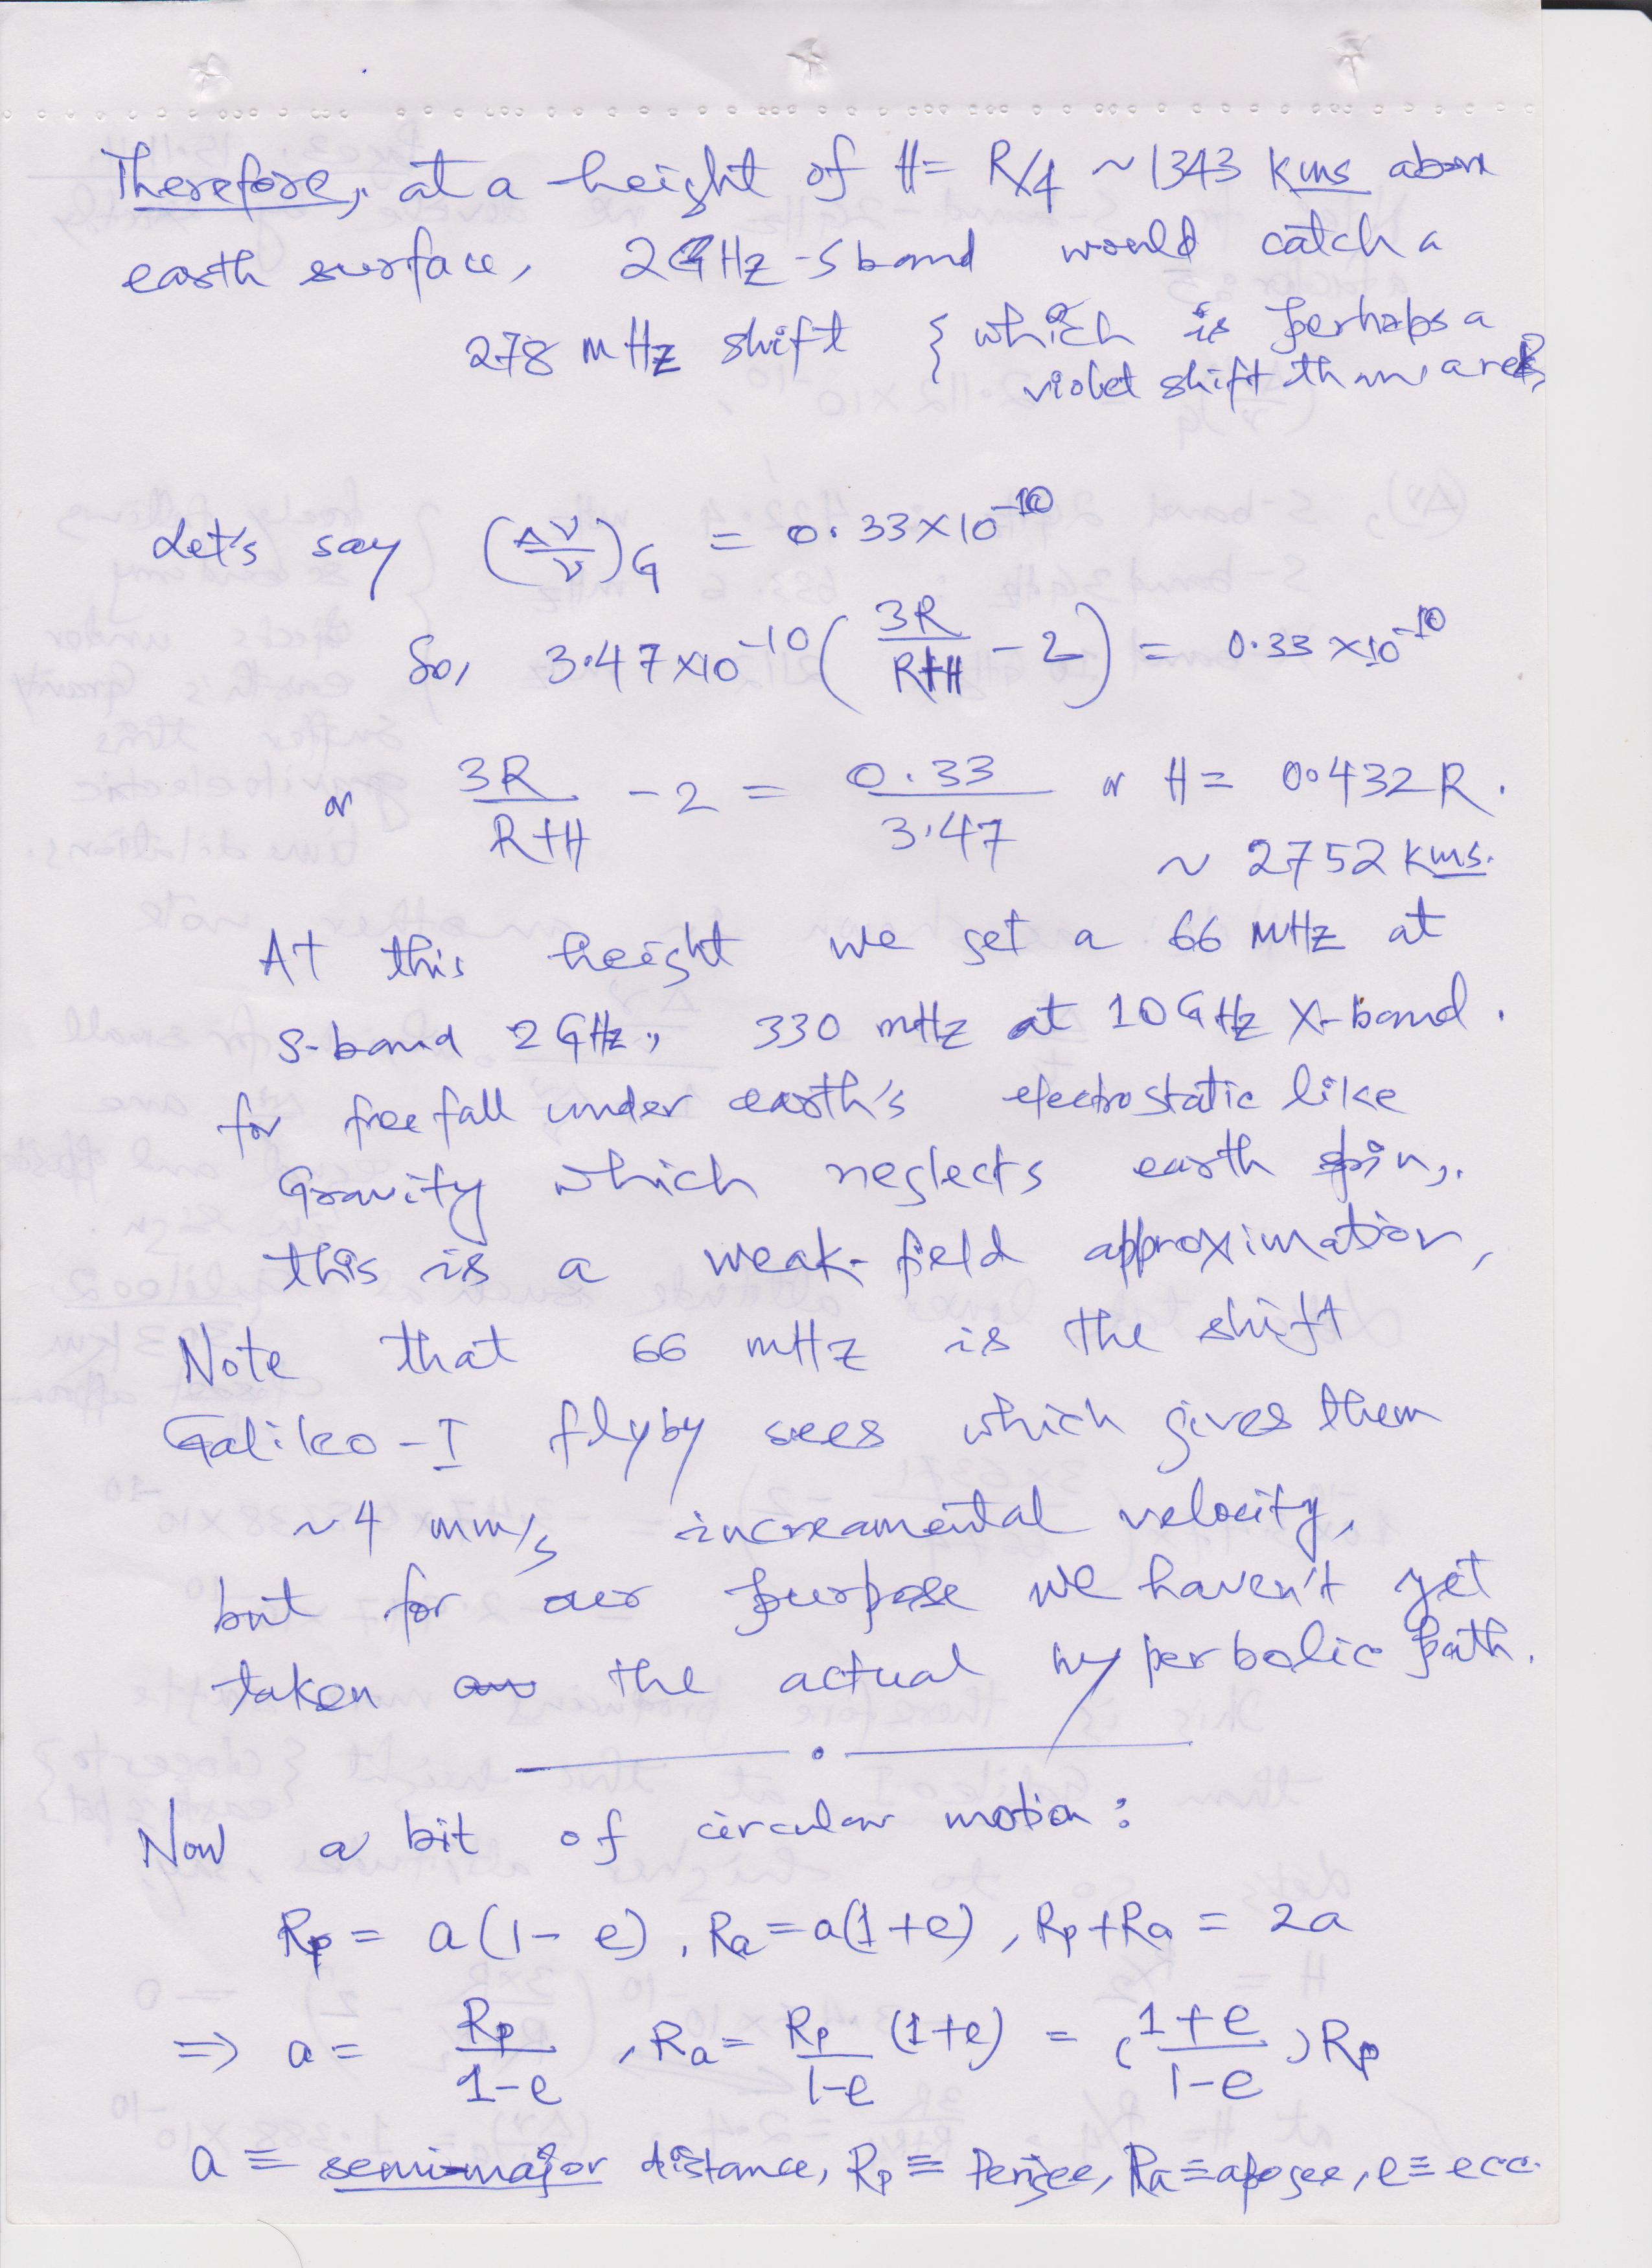 Therefore, at a height of H = R/4 ~ 1343 kms above
earth surface, 2GHz-S band would catch a
278 mHz shift { which is perhaps a
violet shift than a red,
Let's say (Δν/ν)G = 0.33×10^-10
So, 3.47×10^-10 ( 3R/(R+H) - 2 ) = 0.33×10^-10
or 3R/(R+H) - 2 = 0.33/3.47 or H = 0.432R.
~ 2752 kms.
At this height we get a 66 mHz at
S-band 2GHz, 330 mHz at 10GHz X-band.
for free fall under earth's electrostatic like
Gravity which neglects earth spin,.
this is a weak-field approximation,
Note that 66 mHz is the shift
Galileo-I flyby sees which gives them
~4 mm/s increamental velocity,
but for our purpose we haven't yet
taken the actual hyperbolic path.
Now a bit of circular motion:
Rp = a(1-e), Ra = a(1+e), Rp+Ra = 2a
⇒ a = Rp/(1-e), Ra = Rp/(1-e) (1+e) = ((1+e)/(1-e)) Rp
a ≡ semi-major distance, Rp ≡ Perigee, Ra ≡ apogee, e ≡ ecc.